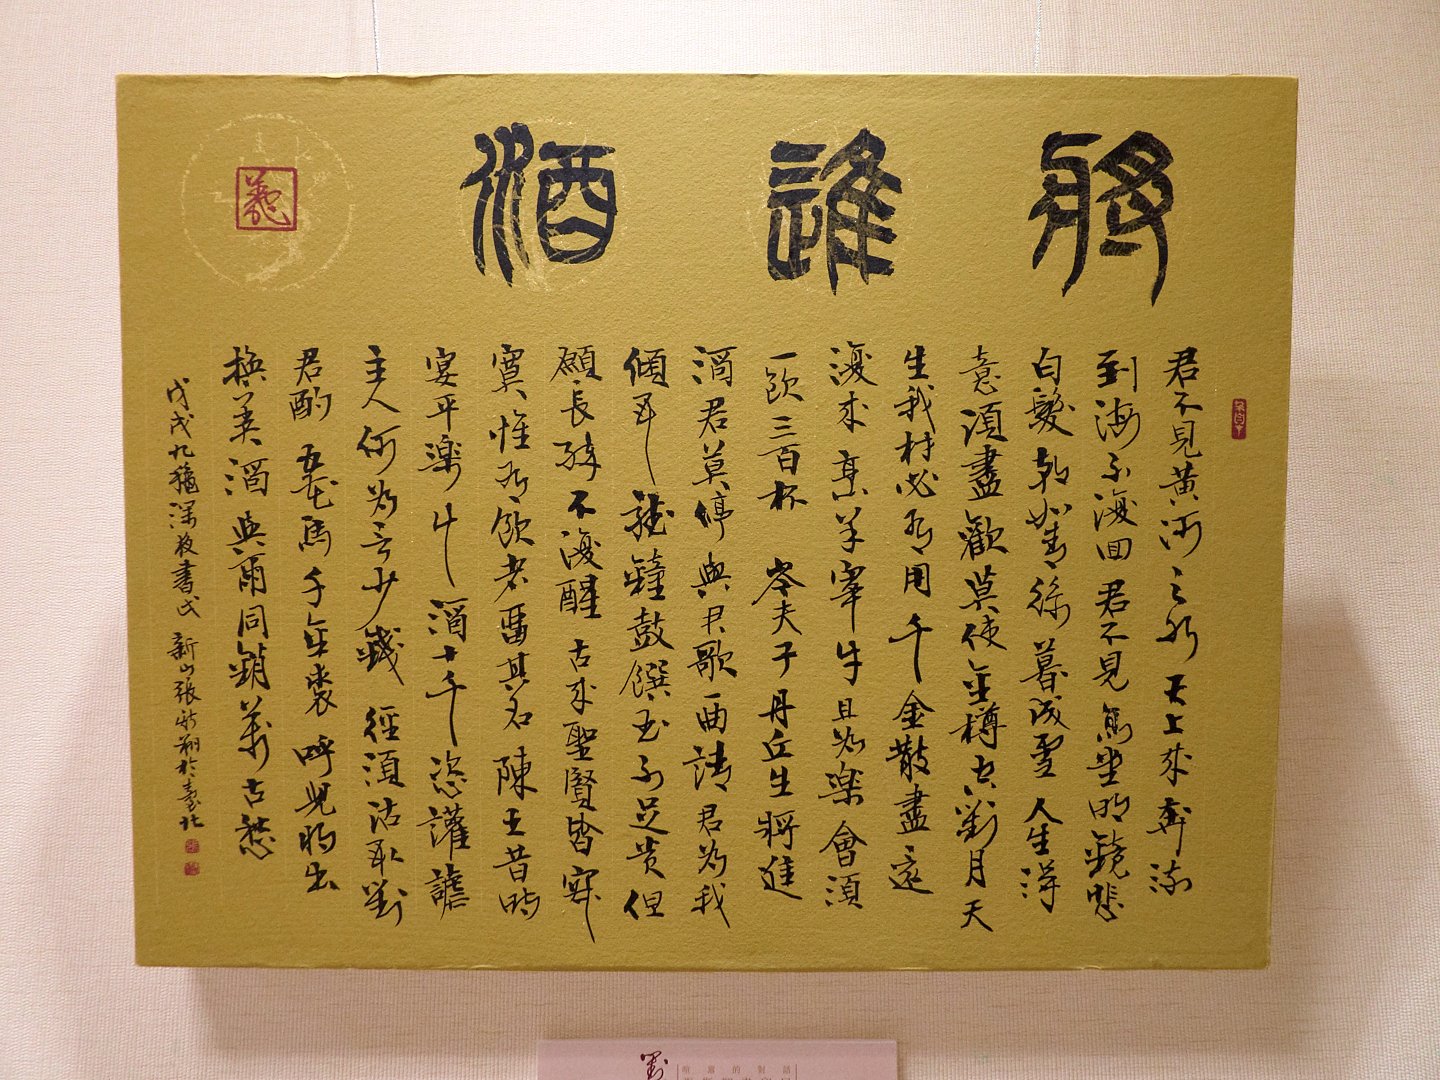 將進酒
君不見黃河之水天上來奔流
到海不復回君不見高堂明鏡悲
白髮朝如青絲暮成雪人生得
意須盡歡莫使金樽空對月天
生我材必有用千金散盡還
復來烹羊宰牛且為樂會須
一飲三百杯岑夫子丹丘生將進
酒君莫停與君歌一曲請君為我
傾耳聽鐘鼓饌玉不足貴但
願長醉不復醒古來聖賢皆寂
寞惟有飲者留其名陳王昔時
宴平樂斗酒十千恣讙謔
主人何為言少錢徑須沽取對
君酌五花馬千金裘呼兒將出
換美酒與爾同銷萬古愁
戊戌九龝深夜書 新山張翔於臺北
對
的對話